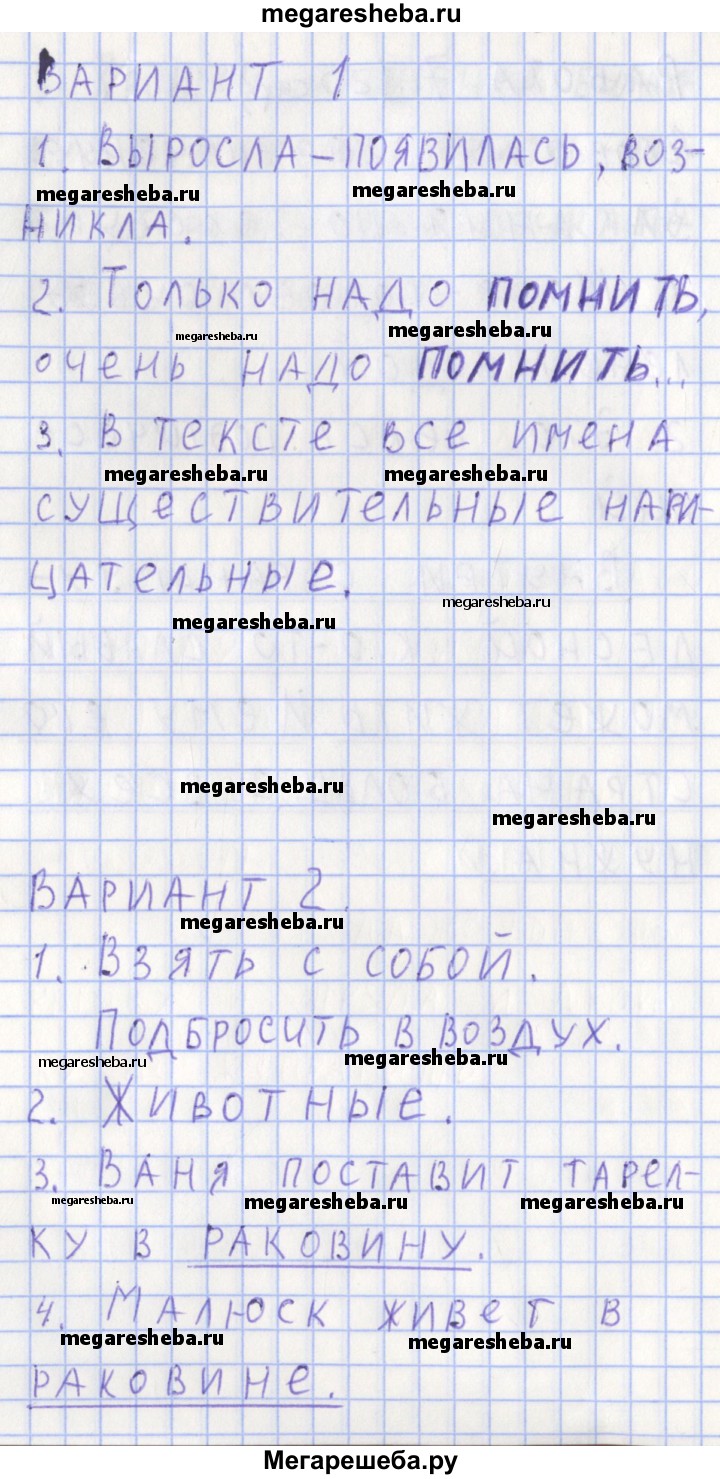 megaresheba.ru
ВАРИАНТ 1
1. ВЫРОСЛА – ПОЯВИЛАСЬ, ВОЗ-
megaresheba.ru megaresheba.ru
НИКЛА.
2. ТОЛЬКО НАДО ПОМНИТЬ,
megaresheba.ru megaresheba.ru
ОЧЕНЬ НАДО ПОМНИТЬ...
3. В ТЕКСТЕ ВСЕ ИМЕНА
megaresheba.ru megaresheba.ru
СУЩЕСТВИТЕЛЬНЫЕ НАРИ-
ЦАТЕЛЬНЫЕ.
megaresheba.ru
megaresheba.ru
megaresheba.ru
megaresheba.ru
ВАРИАНТ 2.
megaresheba.ru
1. ВЗЯТЬ С СОБОЙ.
ПОДБРОСИТЬ В ВОЗДУХ.
megaresheba.ru megaresheba.ru
2. ЖИВОТНЫЕ.
3. ВАНЯ ПОСТАВИТ ТАРЕЛ-
megaresheba.ru megaresheba.ru megaresheba.ru
КУ В РАКОВИНУ.
4. МАЛЮСК ЖИВЕТ В
megaresheba.ru megaresheba.ru
РАКОВИНЕ.
Мегарешеба.ру